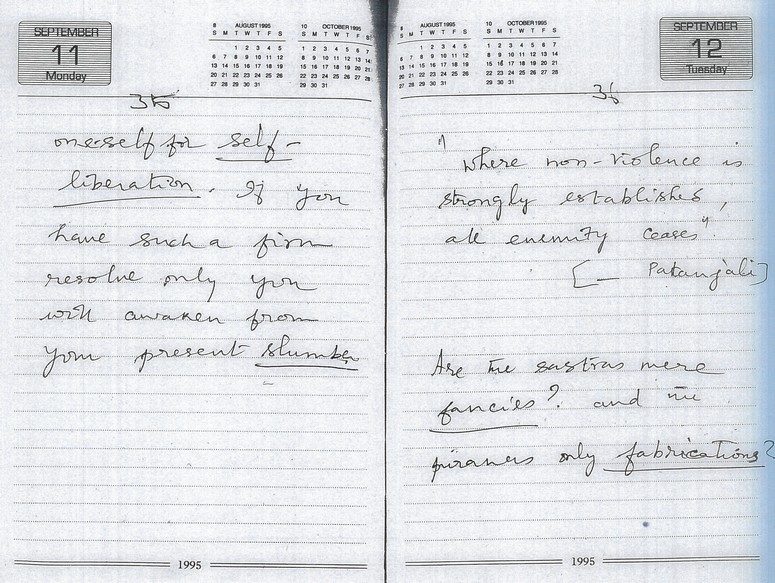 SEPTEMBER
11
Monday
8 AUGUST 1995
S M T W T F S
1 2 3 4 5
6 7 8 9 10 11 12
13 14 15 16 17 18 19
20 21 22 23 24 25 26
27 28 29 30 31
10 OCTOBER 1995
S M T W T F S
1 2 3 4 5 6 7
8 9 10 11 12 13 14
15 16 17 18 19 20 21
22 23 24 25 26 27 28
29 30 31
35
oneself for self-
liberation. If you
have such a firm
resolve only you
will awaken from
your present slumber
1995
8 AUGUST 1995
S M T W T F S
1 2 3 4 5
6 7 8 9 10 11 12
13 14 15 16 17 18 19
20 21 22 23 24 25 26
27 28 29 30 31
10 OCTOBER 1995
S M T W T F S
1 2 3 4 5 6 7
8 9 10 11 12 13 14
15 16 17 18 19 20 21
22 23 24 25 26 27 28
29 30 31
SEPTEMBER
12
Tuesday
36
"Where non-violence is
strongly established,
all enmity ceases".
[— Patanjali]
Are the sastras mere
fancies? and the
puranas only fabrications?
1995